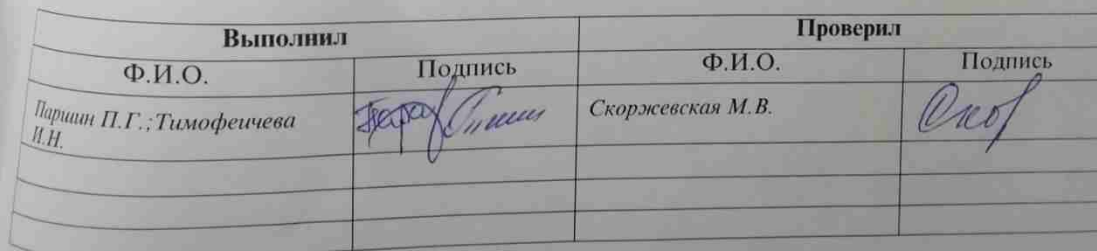 Выполнил Проверил
Ф.И.О. Подпись Ф.И.О. Подпись
Паршин П.Г.;Тимофеичева Скоржевская М.В.
И.Н.